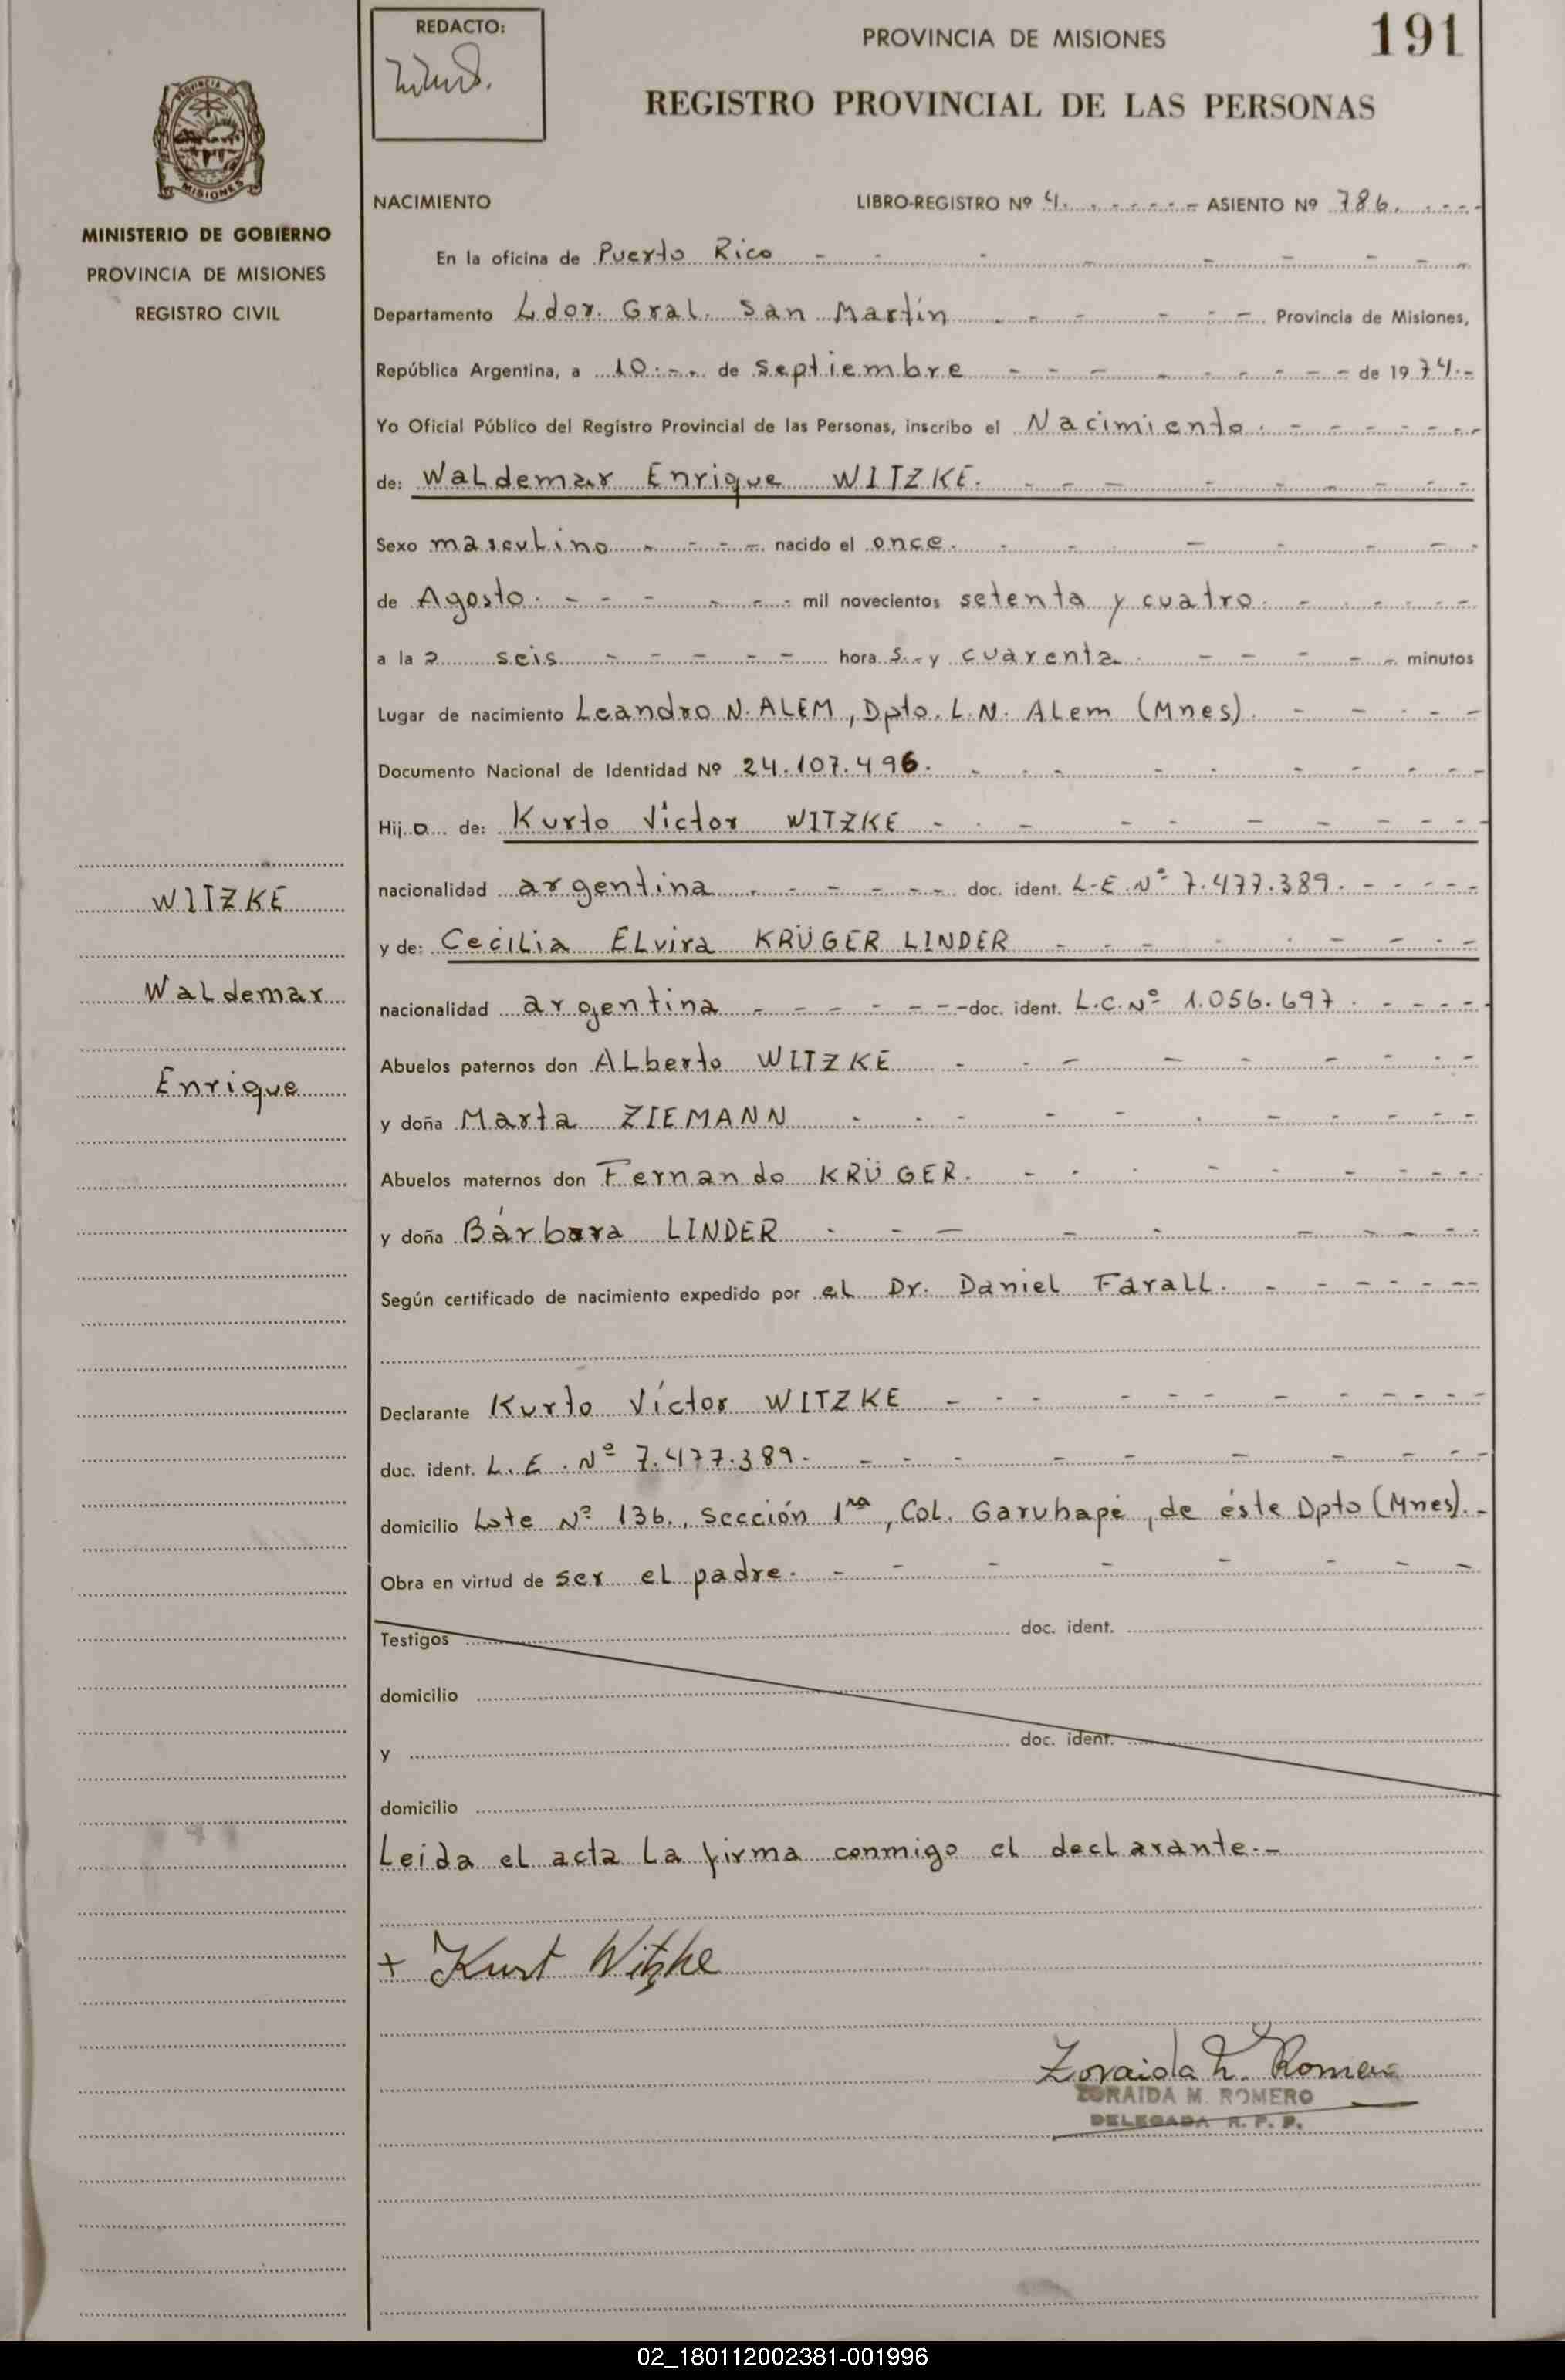 REDACTO:
PROVINCIA DE MISIONES
191
REGISTRO PROVINCIAL DE LAS PERSONAS
MISIONES
MINISTERIO DE GOBIERNO
PROVINCIA DE MISIONES
REGISTRO CIVIL
NACIMIENTO LIBRO-REGISTRO Nº 4. ASIENTO Nº 786.
En la oficina de Puerto Rico
Departamento Ldor. Gral. San Martín Provincia de Misiones,
República Argentina, a 10 de Septiembre de 1974.-
Yo Oficial Público del Registro Provincial de las Personas, inscribo el Nacimiento.
de: Waldemar Enrique WITZKE.
Sexo masculino nacido el once.
de Agosto. mil novecientos setenta y cuatro.
a la s seis hora s. y cuarenta minutos
Lugar de nacimiento Leandro N. ALEM, Dpto. L.N. Alem (Mnes).
Documento Nacional de Identidad Nº 24.107.496.
Hij o de: Kurto Víctor WITZKE
nacionalidad argentina doc. ident. L.E. Nº 7.477.389.
y de: Cecilia Elvira KRÜGER LINDER
nacionalidad argentina doc. ident. L.C. Nº 1.056.697.
Abuelos paternos don Alberto WITZKE
y doña Marta ZIEMANN
Abuelos maternos don Fernando KRÜGER.
y doña Bárbara LINDER
Según certificado de nacimiento expedido por el Dr. Daniel Farall.
Declarante Kurto Víctor WITZKE
doc. ident. L.E. Nº 7.477.389.
domicilio Lote Nº 136., Sección 1ra, Col. Garuhapé, de éste Dpto (Mnes).-
Obra en virtud de ser el padre.
Testigos doc. ident.
domicilio
y doc. ident.
domicilio
Leida el acta la firma conmigo el declarante.-
+ Kurt Witzke
Zoraida M. Romero
ZORAIDA M. ROMERO
DELEGADA R. P. P.
WITZKE
Waldemar
Enrique
02_180112002381-001996